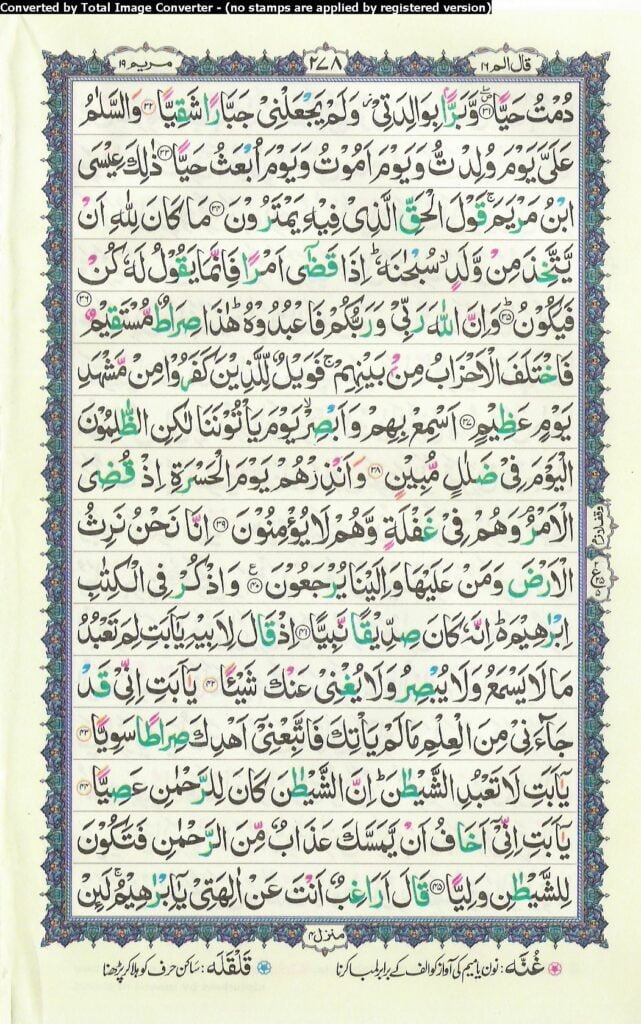 Converted by Total Image Converter - (no stamps are applied by registered version)
قال الم ١٦
٢٧٨
مریم ١٩
دُمْتُ حَيًّا ﴿٣١﴾ وَّبَرًّۢا بِوَالِدَتِىْ وَلَمْ يَجْعَلْنِىْ جَبَّارًا شَقِيًّا ﴿٣٢﴾ وَالسَّلٰمُ
عَلَىَّ يَوْمَ وُلِدْتُّ وَيَوْمَ اَمُوْتُ وَيَوْمَ اُبْعَثُ حَيًّا ﴿٣٣﴾ ذٰلِكَ عِيْسَى
ابْنُ مَرْيَمَ ۚ قَوْلَ الْحَقِّ الَّذِىْ فِيْهِ يَمْتَرُوْنَ ﴿٣٤﴾ مَا كَانَ لِلّٰهِ اَنْ
يَّتَّخِذَ مِنْ وَّلَدٍ ۙ سُبْحٰنَهٗ ؕ اِذَا قَضٰٓى اَمْرًا فَاِنَّمَا يَقُوْلُ لَهٗ كُنْ
فَيَكُوْنُ ؕ ﴿٣٥﴾ وَاِنَّ اللّٰهَ رَبِّىْ وَرَبُّكُمْ فَاعْبُدُوْهُ ؕ هٰذَا صِرَاطٌ مُّسْتَقِيْمٌ ﴿٣٦﴾
فَاخْتَلَفَ الْاَحْزَابُ مِنْۢ بَيْنِهِمْ ۚ فَوَيْلٌ لِّلَّذِيْنَ كَفَرُوْا مِنْ مَّشْهَدِ
يَوْمٍ عَظِيْمٍ ﴿٣٧﴾ اَسْمِعْ بِهِمْ وَاَبْصِرْ ۙ يَوْمَ يَاْتُوْنَنَا لٰكِنِ الظّٰلِمُوْنَ
الْيَوْمَ فِىْ ضَلٰلٍ مُّبِيْنٍ ﴿٣٨﴾ وَاَنْذِرْهُمْ يَوْمَ الْحَسْرَةِ اِذْ قُضِىَ
الْاَمْرُ ۘ وَهُمْ فِىْ غَفْلَةٍ وَّهُمْ لَا يُؤْمِنُوْنَ ﴿٣٩﴾ اِنَّا نَحْنُ نَرِثُ
الْاَرْضَ وَمَنْ عَلَيْهَا وَاِلَيْنَا يُرْجَعُوْنَ ﴿٤٠﴾ وَاذْكُرْ فِى الْكِتٰبِ
اِبْرٰهِيْمَ ؕ اِنَّهٗ كَانَ صِدِّيْقًا نَّبِيًّا ﴿٤١﴾ اِذْ قَالَ لِاَبِيْهِ يٰۤاَبَتِ لِمَ تَعْبُدُ
مَا لَا يَسْمَعُ وَلَا يُبْصِرُ وَلَا يُغْنِىْ عَنْكَ شَيْئًا ﴿٤٢﴾ يٰۤاَبَتِ اِنِّىْ قَدْ
جَآءَنِىْ مِنَ الْعِلْمِ مَا لَمْ يَاْتِكَ فَاتَّبِعْنِىْۤ اَهْدِكَ صِرَاطًا سَوِيًّا ﴿٤٣﴾
يٰۤاَبَتِ لَا تَعْبُدِ الشَّيْطٰنَ ؕ اِنَّ الشَّيْطٰنَ كَانَ لِلرَّحْمٰنِ عَصِيًّا ﴿٤٤﴾
يٰۤاَبَتِ اِنِّىْۤ اَخَافُ اَنْ يَّمَسَّكَ عَذَابٌ مِّنَ الرَّحْمٰنِ فَتَكُوْنَ
لِلشَّيْطٰنِ وَلِيًّا ﴿٤٥﴾ قَالَ اَرَاغِبٌ اَنْتَ عَنْ اٰلِهَتِىْ يٰۤاِبْرٰهِيْمُ ۚ لَئِنْ
منزل ٤
غُنَّہ: نون یا میم کی آواز کو الف کے برابر لمبا کرنا
قَلْقَلَہ: ساکن حرف کو ہلا کر پڑھنا